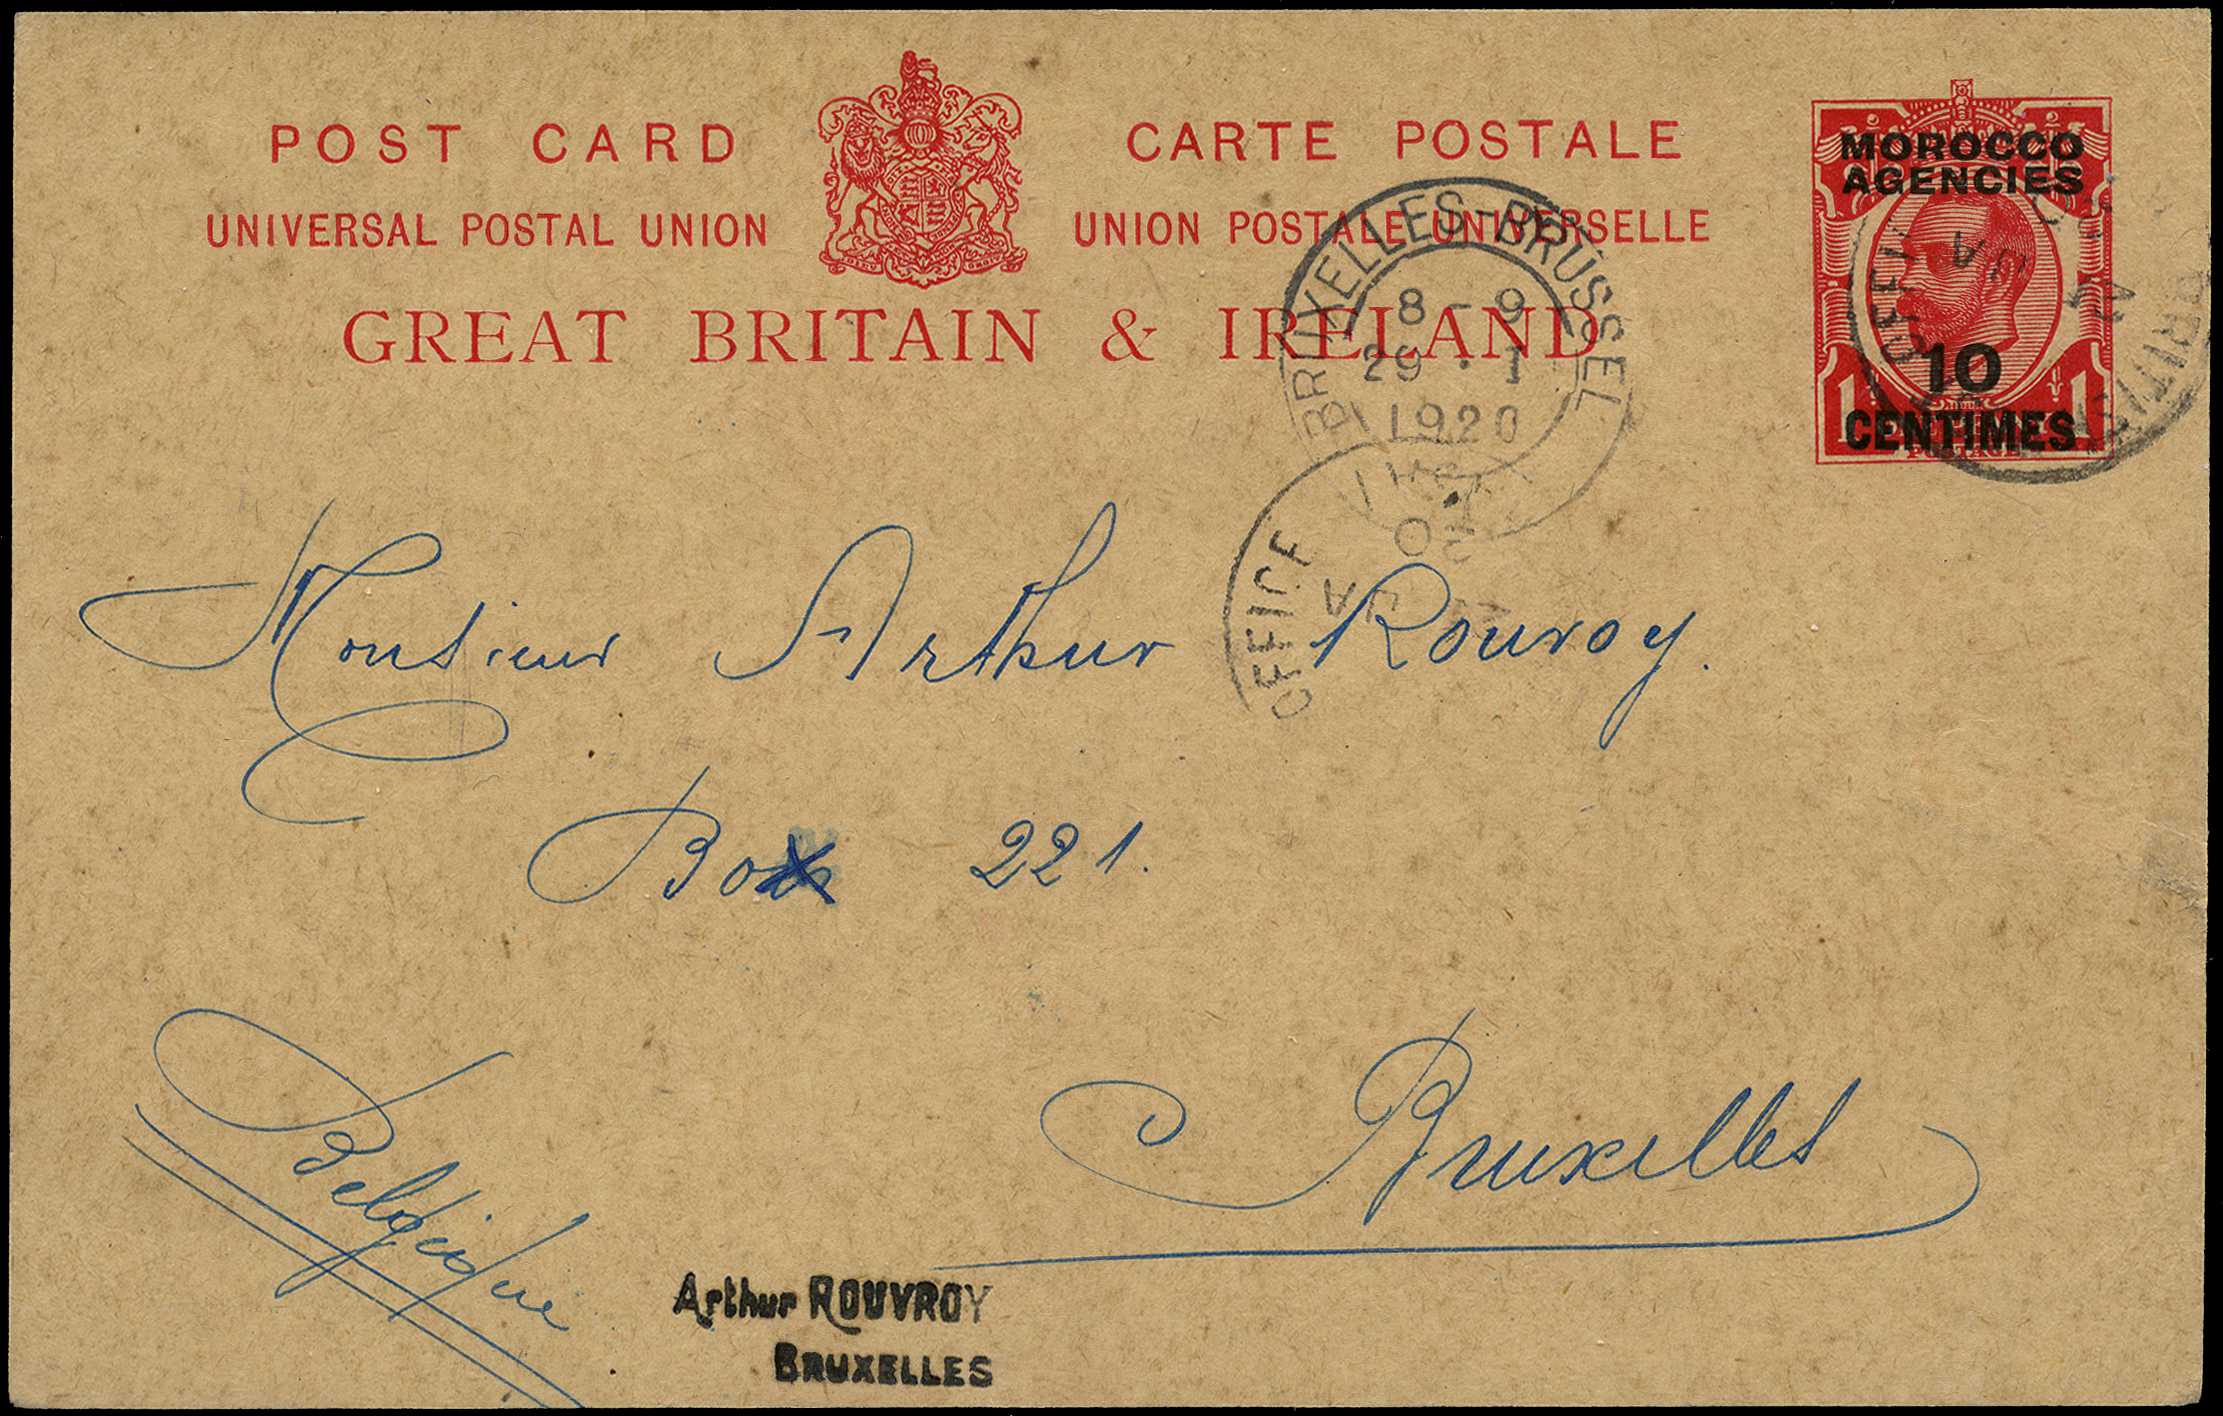 POST CARD CARTE POSTALE
UNIVERSAL POSTAL UNION UNION POSTALE UNIVERSELLE
GREAT BRITAIN & IRELAND
MOROCCO
AGENCIES
10
CENTIMES
1 1
POSTAGE
BRUXELLES-BRUSSEL
8-9
29 · 1
1920
OFFICE
JA
20
Monsieur Arthur Rouvroy.
Box 221.
Bruxelles
Belgique
Arthur ROUVROY
BRUXELLES